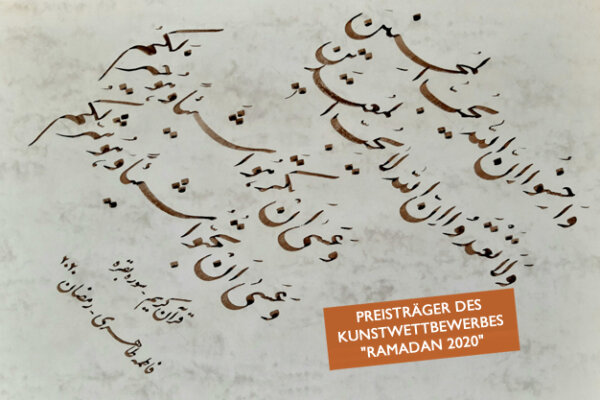 وَاحسِنوا اِنَّ اللهَ یُحِبُّ المُحسنین
وَلا تَعتَدُوا اِنَّ اللهَ لا یُحِبُّ المُعتَدین
وَعَسیٰ اَن تَکرَهُوا شَیئاً وَ هُوَ خَیرٌ لَکُم
وَعَسیٰ اَن تُحِبُّوا شَیئاً وَ هُوَ شَرٌّ لَکُم
قرآن کریم - سوره بقره
فاطمه طاهری - رمضان ۲۰۲۰
PREISTRÄGER DES
KUNSTWETTBEWERBES
"RAMADAN 2020"